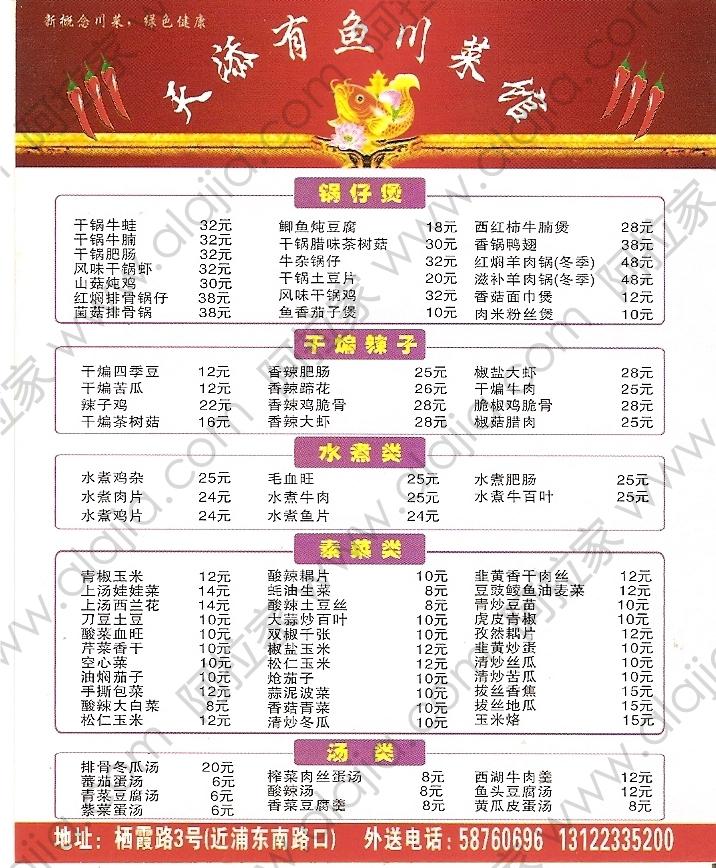 新概念川菜，绿色健康
天添有鱼川菜馆
锅仔煲
干锅牛蛙 32元
干锅牛腩 32元
干锅肥肠 32元
风味干锅虾 32元
山菇炖鸡 30元
红焖排骨锅仔 38元
菌菇排骨锅 38元
鲫鱼炖豆腐 18元
干锅腊味茶树菇 30元
牛杂锅仔 32元
干锅土豆片 20元
风味干锅鸡 32元
鱼香茄子煲 10元
西红柿牛腩煲 28元
香锅鸭翅 38元
红焖羊肉锅(冬季) 48元
滋补羊肉锅(冬季) 48元
香菇面巾煲 12元
肉米粉丝煲 10元
干煸辣子
干煸四季豆 12元
干煸苦瓜 12元
辣子鸡 22元
干煸茶树菇 16元
香辣肥肠 25元
香辣蹄花 26元
香辣鸡脆骨 28元
香辣大虾 28元
椒盐大虾 28元
干煸牛肉 25元
脆椒鸡脆骨 28元
椒菇腊肉 25元
水煮类
水煮鸡杂 25元
水煮肉片 24元
水煮鸡片 24元
毛血旺 25元
水煮牛肉 25元
水煮鱼片 24元
水煮肥肠 25元
水煮牛百叶 25元
素菜类
青椒玉米 12元
上汤娃娃菜 14元
上汤西兰花 14元
刀豆土豆 10元
酸菜血旺 10元
芹菜香干 10元
空心菜 10元
油焖茄子 10元
手撕包菜 12元
酸辣大白菜 8元
松仁玉米 12元
酸辣耦片 10元
蚝油生菜 8元
酸辣土豆丝 8元
大蒜炒百叶 10元
双椒千张 10元
椒盐玉米 12元
松仁玉米 12元
炝茄子 10元
蒜泥波菜 10元
香菇青菜 10元
清炒冬瓜 10元
韭黄香干肉丝 12元
豆豉鲮鱼油麦菜 12元
青炒豆苗 10元
虎皮青椒 10元
孜然耦片 12元
韭黄炒蛋 10元
清炒丝瓜 10元
清炒苦瓜 10元
拔丝香蕉 15元
拔丝地瓜 15元
玉米烙 15元
汤类
排骨冬瓜汤 20元
蕃茄蛋汤 6元
青菜豆腐汤 6元
紫菜蛋汤 6元
榨菜肉丝蛋汤 8元
酸辣汤 8元
香菜豆腐羹 8元
西湖牛肉羹 12元
鱼头豆腐汤 12元
黄瓜皮蛋汤 8元
地址：栖霞路3号(近浦东南路口) 外送电话：58760696 13122335200
阿拉家 www.alajia.com